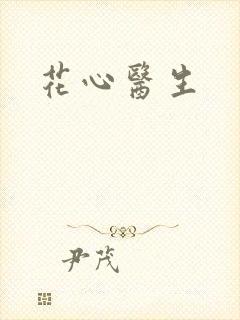 花心醫生
尹茂